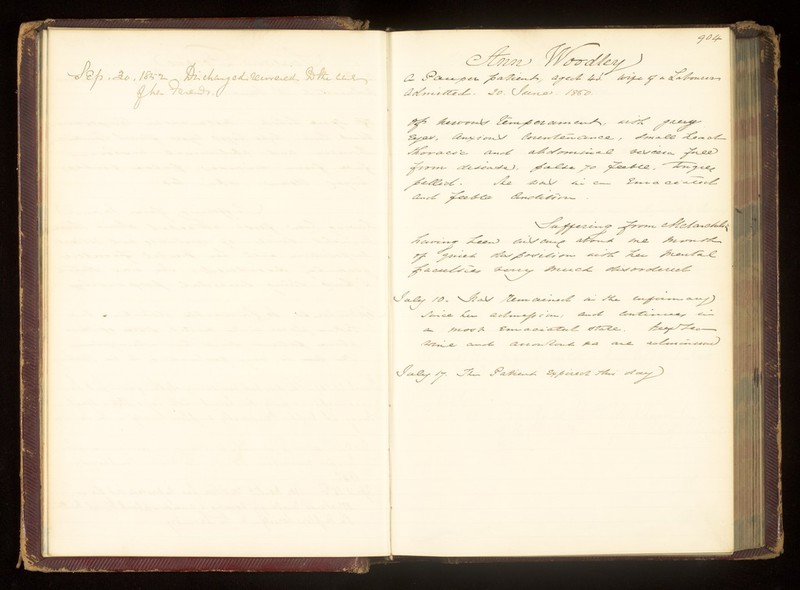 Sep. 20. 1852 Discharged recovered to the care
of her Friends.
904
Ann Woodley
A Pauper patient, aged wife of a Labourer
Admitted. 20. June 1850
Of nervous Temperament, with grey
Eyes, anxious Countenance, small head
thoracic and abdominal viscera free
from disease, pulse 70 feeble, tongue
pallid. She was in an Emaciated
and feeble Condition.
Suffering from Melancholia
having been about one Month
of quiet disposition with her Mental
faculties very much disordered
July 10. Has remained in the infirmary
since her admission, and continues in
a most Emaciated state. Beef Tea
Wine and are administered
July 17. The Patient expired this day